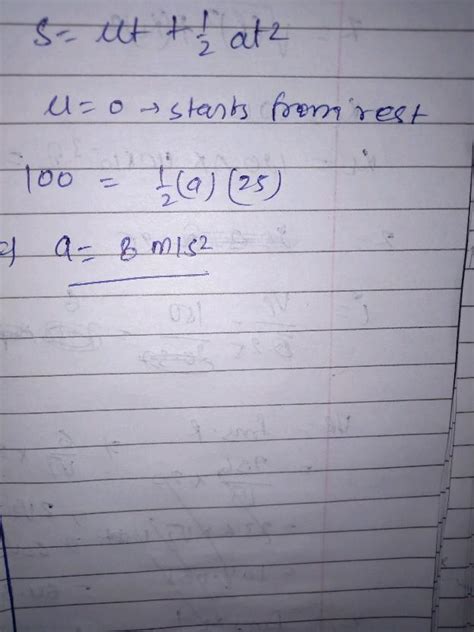 S = ut + 1/2 at2
u = 0 → starts from rest
100 = 1/2 (a) (25)
a = 8 m/s2